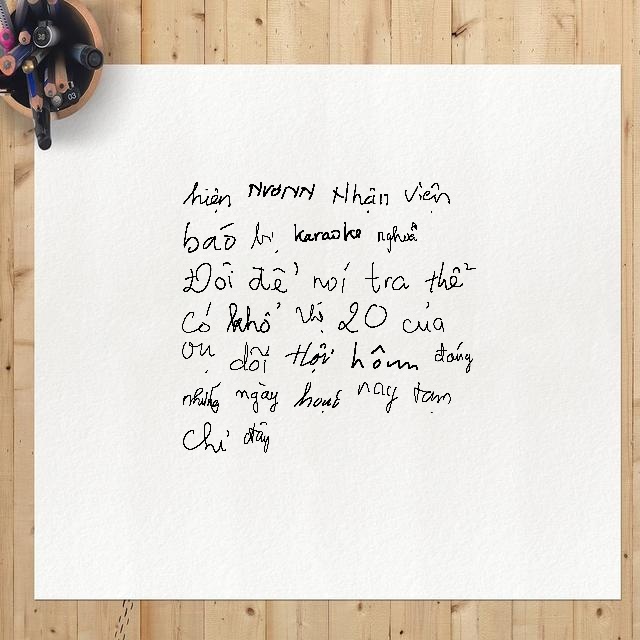 hiện NVƠNN Nhận viên
báo bị karaoke nghĩa
Đôi để nói tra thể
có khổ Vị 20 của
vụ dõi thội hôm đáng
những ngày hoạt nay tạm
Chỉ đây